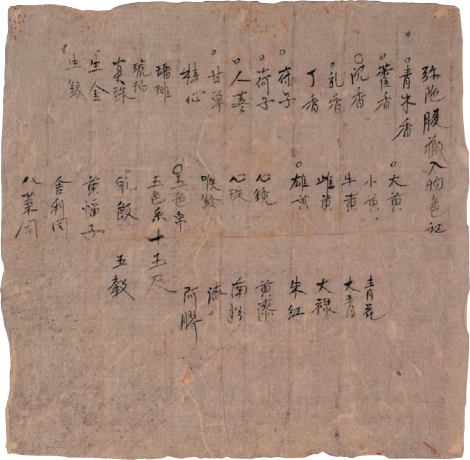 弥陁腹藏入物色記
青木香
藿香
沉香
乳香
丁香
苻子
荷子
人蔘
甘草
桂心
珊瑚
琥珀
真珠
生金
生銀
大黄
小黄
牛黄
雌黄
雄黄
心鏡
心珠
喉鈴
五色帛
五色糸十五尺
乹飯 五穀
黄幅子
舎利同
八葉同
青花
大青
大禄
朱紅
黄漆
南粉
漆
阿膠